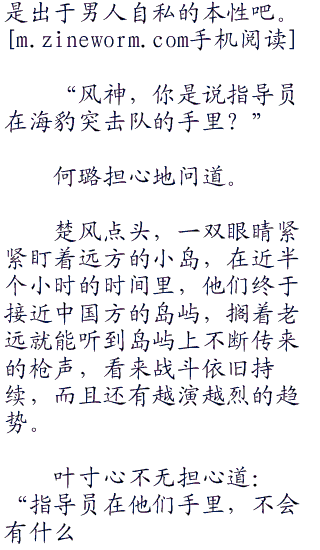 是出于男人自私的本性吧。
[m.zineworm.com手机阅读]
“风神，你是说指导员
在海豹突击队的手里？”
何璐担心地问道。
楚风点头，一双眼睛紧
紧盯着远方的小岛，在近半
个小时的时间里，他们终于
接近中国方的岛屿，搁着老
远就能听到岛屿上不断传来
的枪声，看来战斗依旧持
续，而且还有越演越烈的趋
势。
叶寸心不无担心道：
“指导员在他们手里，不会
有什么